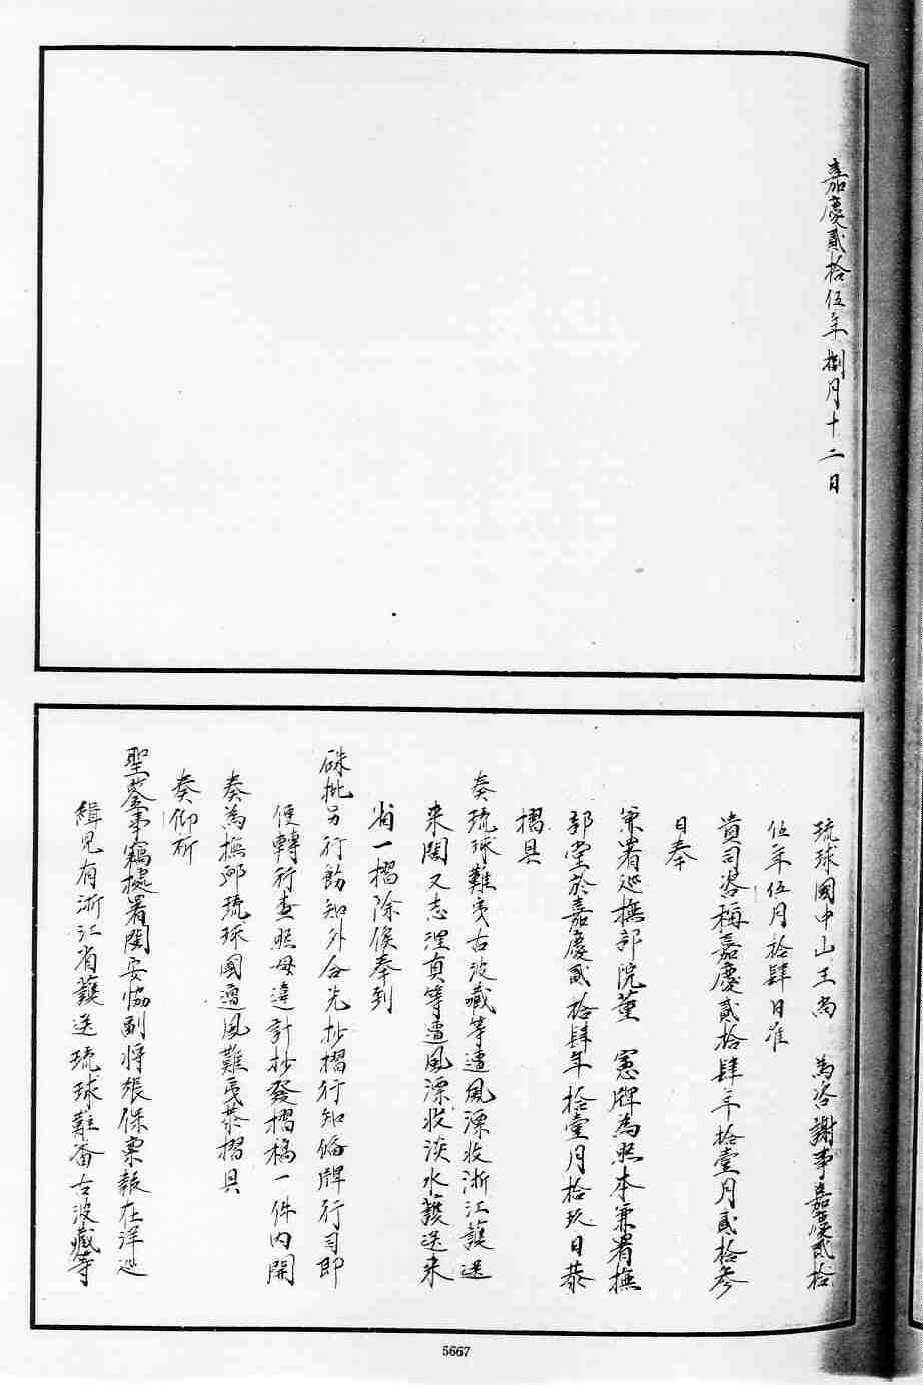 嘉慶貳拾伍年捌月十二日
琉球國中山王尚　為咨謝事嘉慶貳拾
伍年伍月拾肆日准
貴司咨稱嘉慶貳拾肆年拾壹月貳拾叅
日奉
兼署巡撫部院董　憲牌為照本兼署撫
部堂於嘉慶貳拾肆年拾壹月拾玖日恭
摺具
奏琉球難夷古波藏等遭風漂收浙江護送
来閩又志浬真等遭風漂收淡水護送来
省一摺除俟奉到
硃批另行飭知外合先抄摺行知備牌行司即
便轉行查照毋違計抄發摺稿一件內開
奏為撫卹琉球國遭風難夷恭摺具
奏仰祈
聖鑒事竊據署閩安協副將張保稟報在洋巡
緝見有浙江省護送琉球難番古波藏等
5667